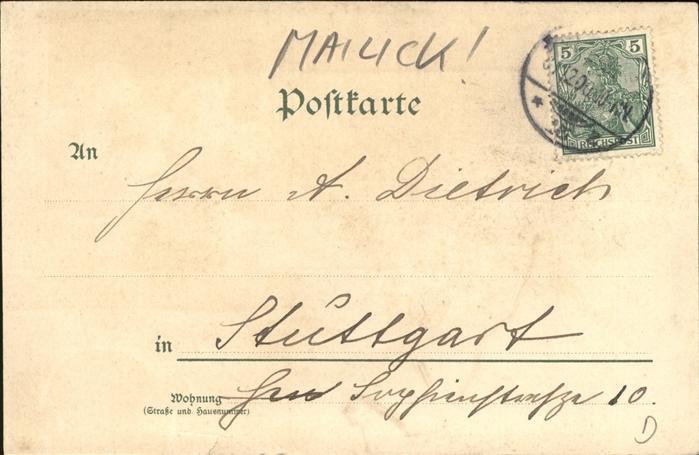 MAILICK!
5 5
REICHSPOST
Postkarte
An
Herrn A. Dietrich
in Stuttgart
Wohnung
(Straße und Hausnummer)
Sophienstraße 10.
D